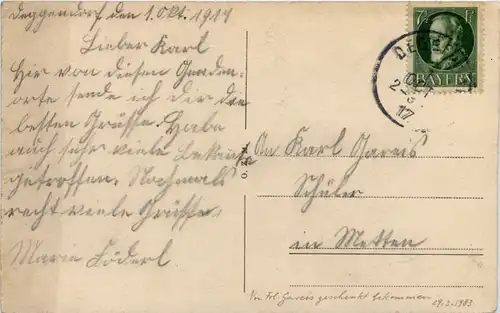 Deggendorf den 1. Okt. 1917
Lieber Karl
Hir von diesen Gnaden-
orte sende ich dir die
besten Grüsse. Habe
auch sehr viele Bekannte
getroffen. Nochmals
recht viele Grüsse.
Marie Löderl.
7½ PF
BAYERN
OKT
17
An Karl Gareis
Schüler
in Metten
Von Frl. Gareis geschenkt bekommen